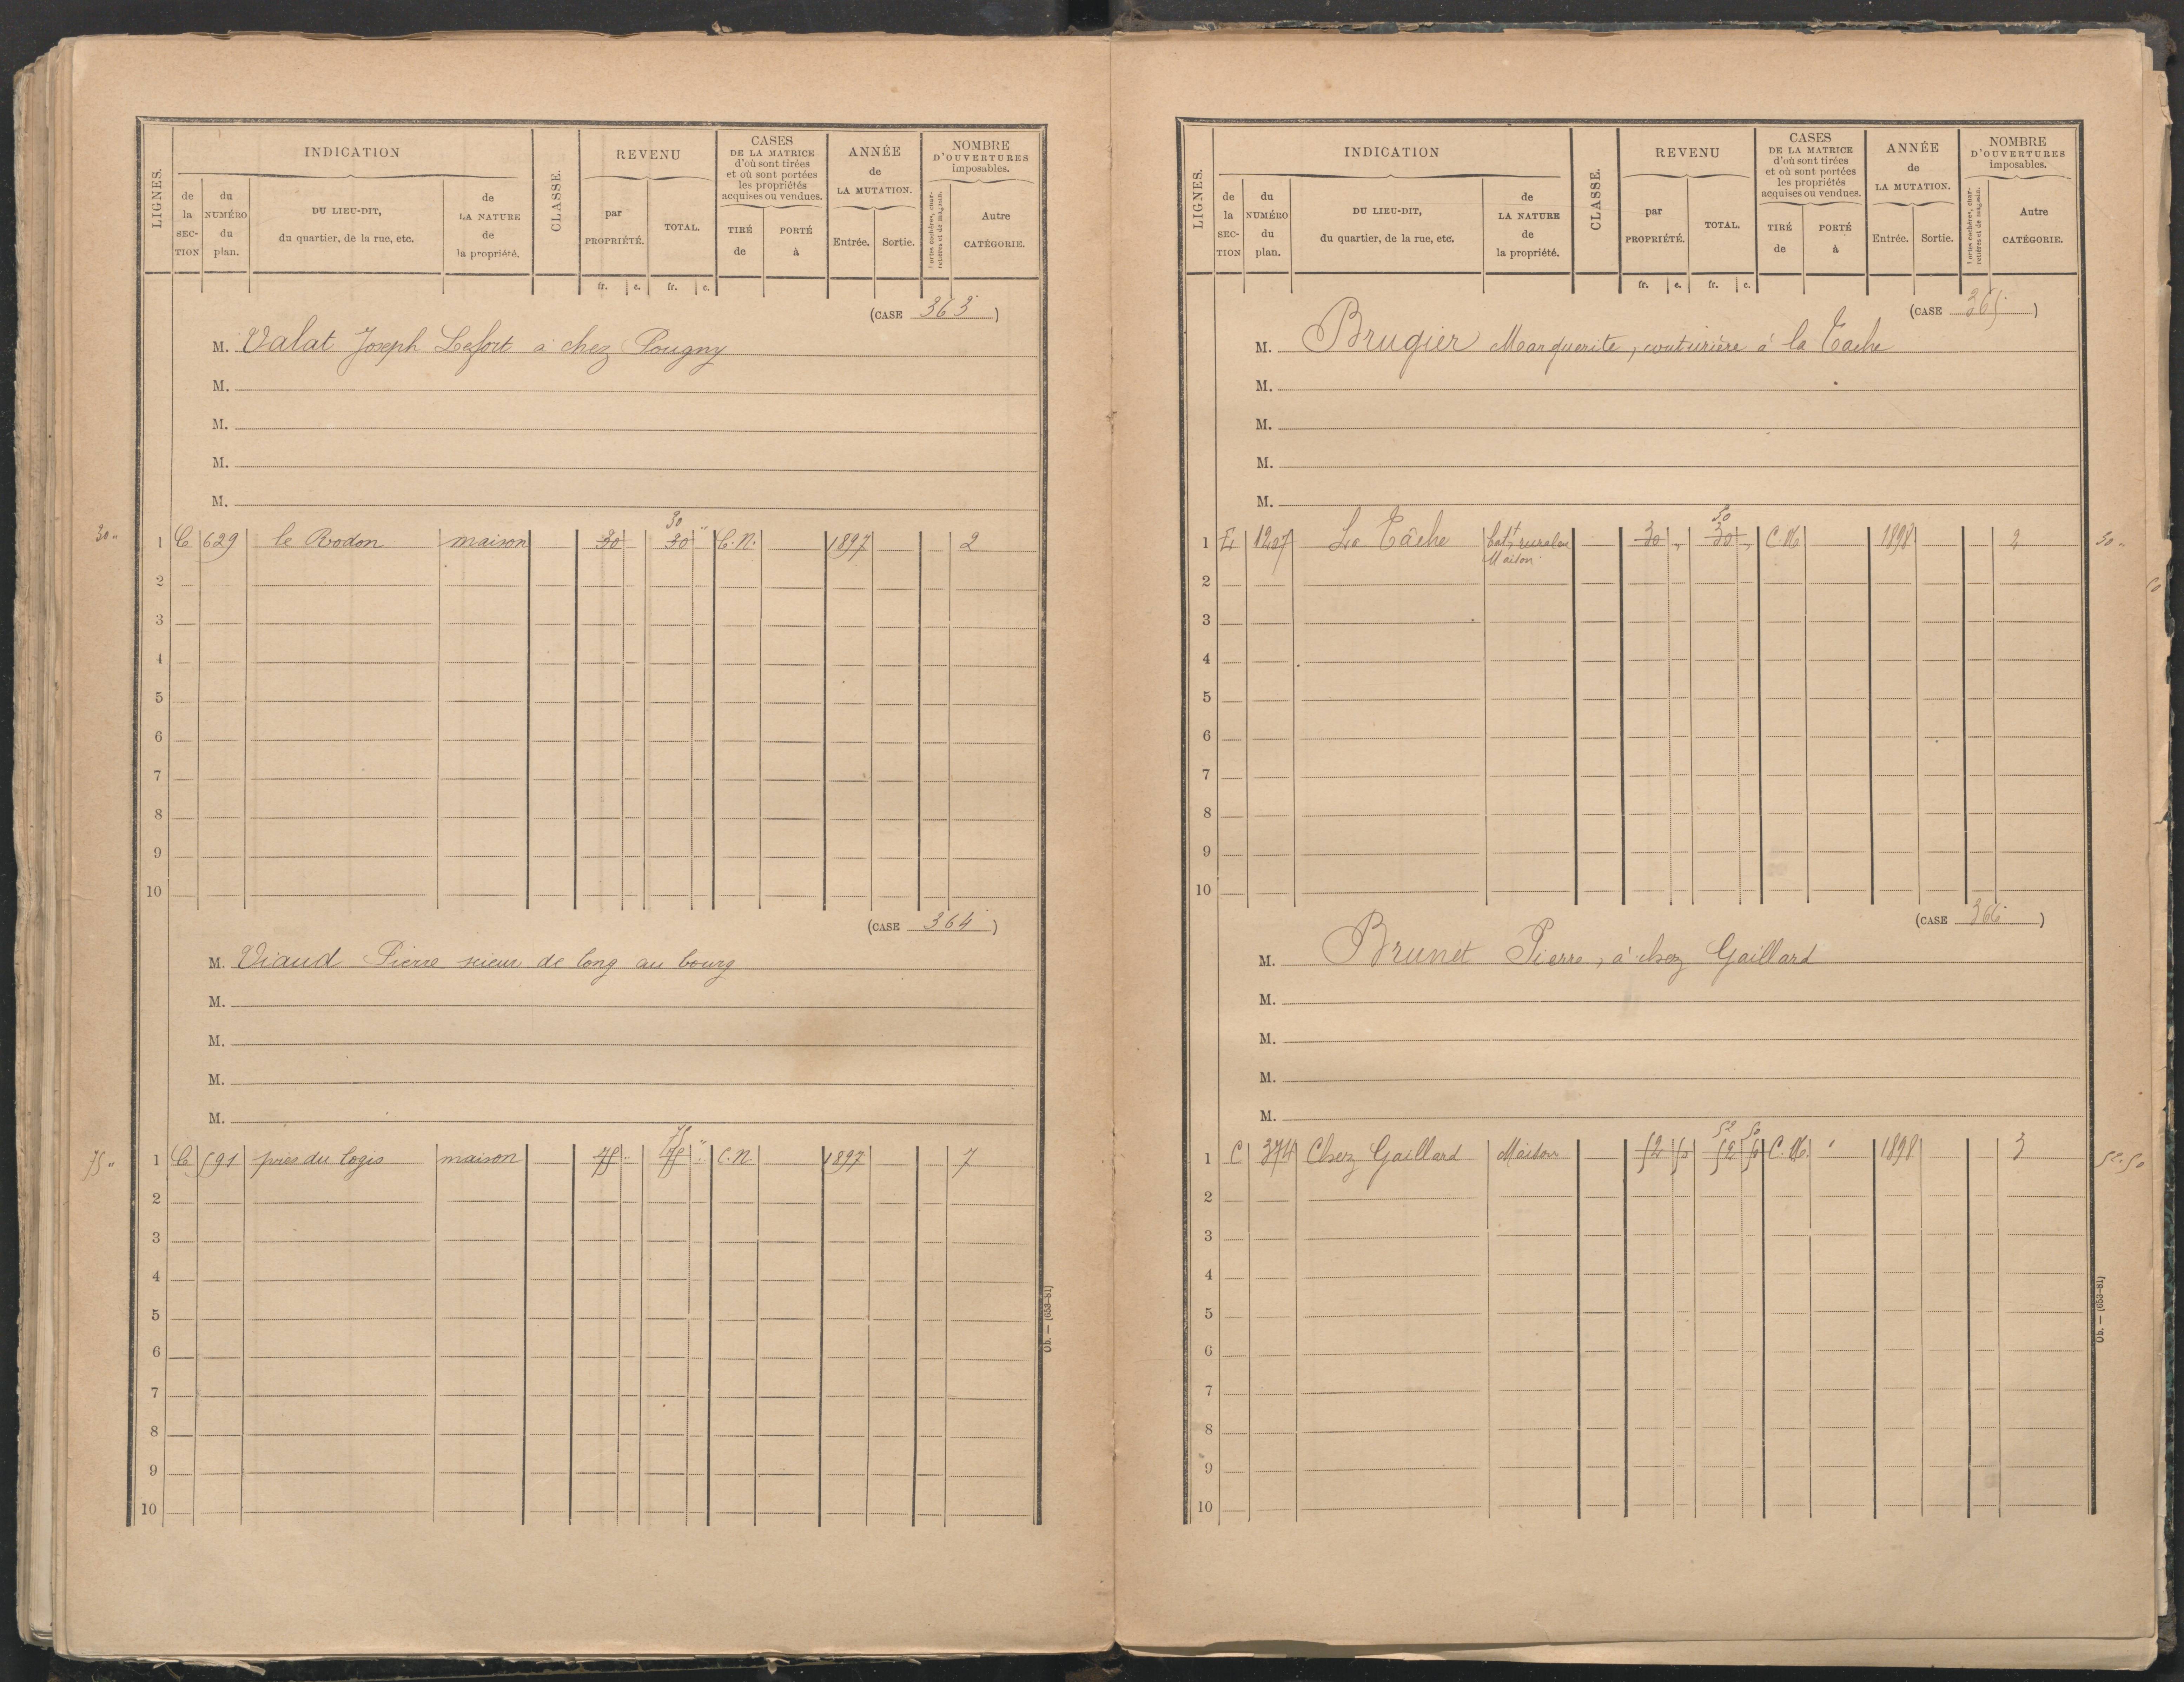 LIGNES.
INDICATION
de la SECTION
du NUMÉRO du plan.
DU LIEU-DIT, du quartier, de la rue, etc.
de LA NATURE de la propriété.
CLASSE.
REVENU
par PROPRIÉTÉ.
TOTAL.
fr. c. fr. c.
CASES DE LA MATRICE d'où sont tirées et où sont portées les propriétés acquises ou vendues.
TIRÉ de
PORTÉ à
ANNÉE de LA MUTATION.
Entrée. Sortie.
NOMBRE D'OUVERTURES imposables.
Portes cochères, charretières et de magasin.
Autre CATÉGORIE.
(CASE 363)
M. Valat Joseph Lefort à chez Pougny
M.
M.
M.
M.
30
30 "
1 C 629 le Rodon maison 30 30 C.N. 1897 2
2
3
4
5
6
7
8
9
10
(CASE 364)
M. Viaud Pierre scieur de long au bourg
M.
M.
M.
M.
75 "
75 "
1 C 591 près du logis maison C.N. 1897 7
2
3
4
5
6
7
8
9
10
Ob. — (653-81)
LIGNES.
INDICATION
de la SECTION
du NUMÉRO du plan.
DU LIEU-DIT, du quartier, de la rue, etc.
de LA NATURE de la propriété.
CLASSE.
REVENU
par PROPRIÉTÉ.
TOTAL.
fr. c. fr. c.
CASES DE LA MATRICE d'où sont tirées et où sont portées les propriétés acquises ou vendues.
TIRÉ de
PORTÉ à
ANNÉE de LA MUTATION.
Entrée. Sortie.
NOMBRE D'OUVERTURES imposables.
Portes cochères, charretières et de magasin.
Autre CATÉGORIE.
(CASE 365)
M. Brugier Marguerite, couturière à la Tache
M.
M.
M.
M.
50
1 E 1207 La Tâche bat^t ruraln 30 " 30 " C.N. 1898 2 50 "
Maison
2
3
4
5
6
7
8
9
10
(CASE 366)
M. Brunet Pierre, à chez Gaillard
M.
M.
M.
M.
52 50
1 C 374 Chez Gaillard Maison 52 50 52 50 C.N. 1898 3 52.50
2
3
4
5
6
7
8
9
10
Ob. — (653-81)